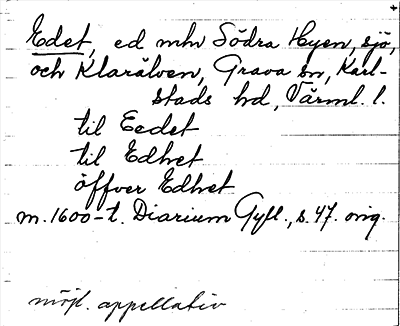 Edet, ed mhv Södra Hyen, sjö,
och Klarälven, Grava sn, Karl-
stads hd, Värml. l.
til Eedet
til Edhet
öffver Edhet
m. 1600-t. Diarium Gyll., s. 47. orig.
möjl. appellativ